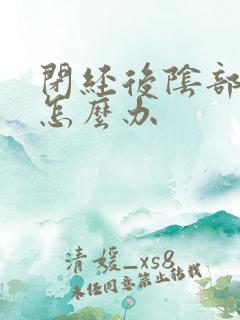 閉經後陰部
怎麼办
清媛_xs8
未经同意禁止转载